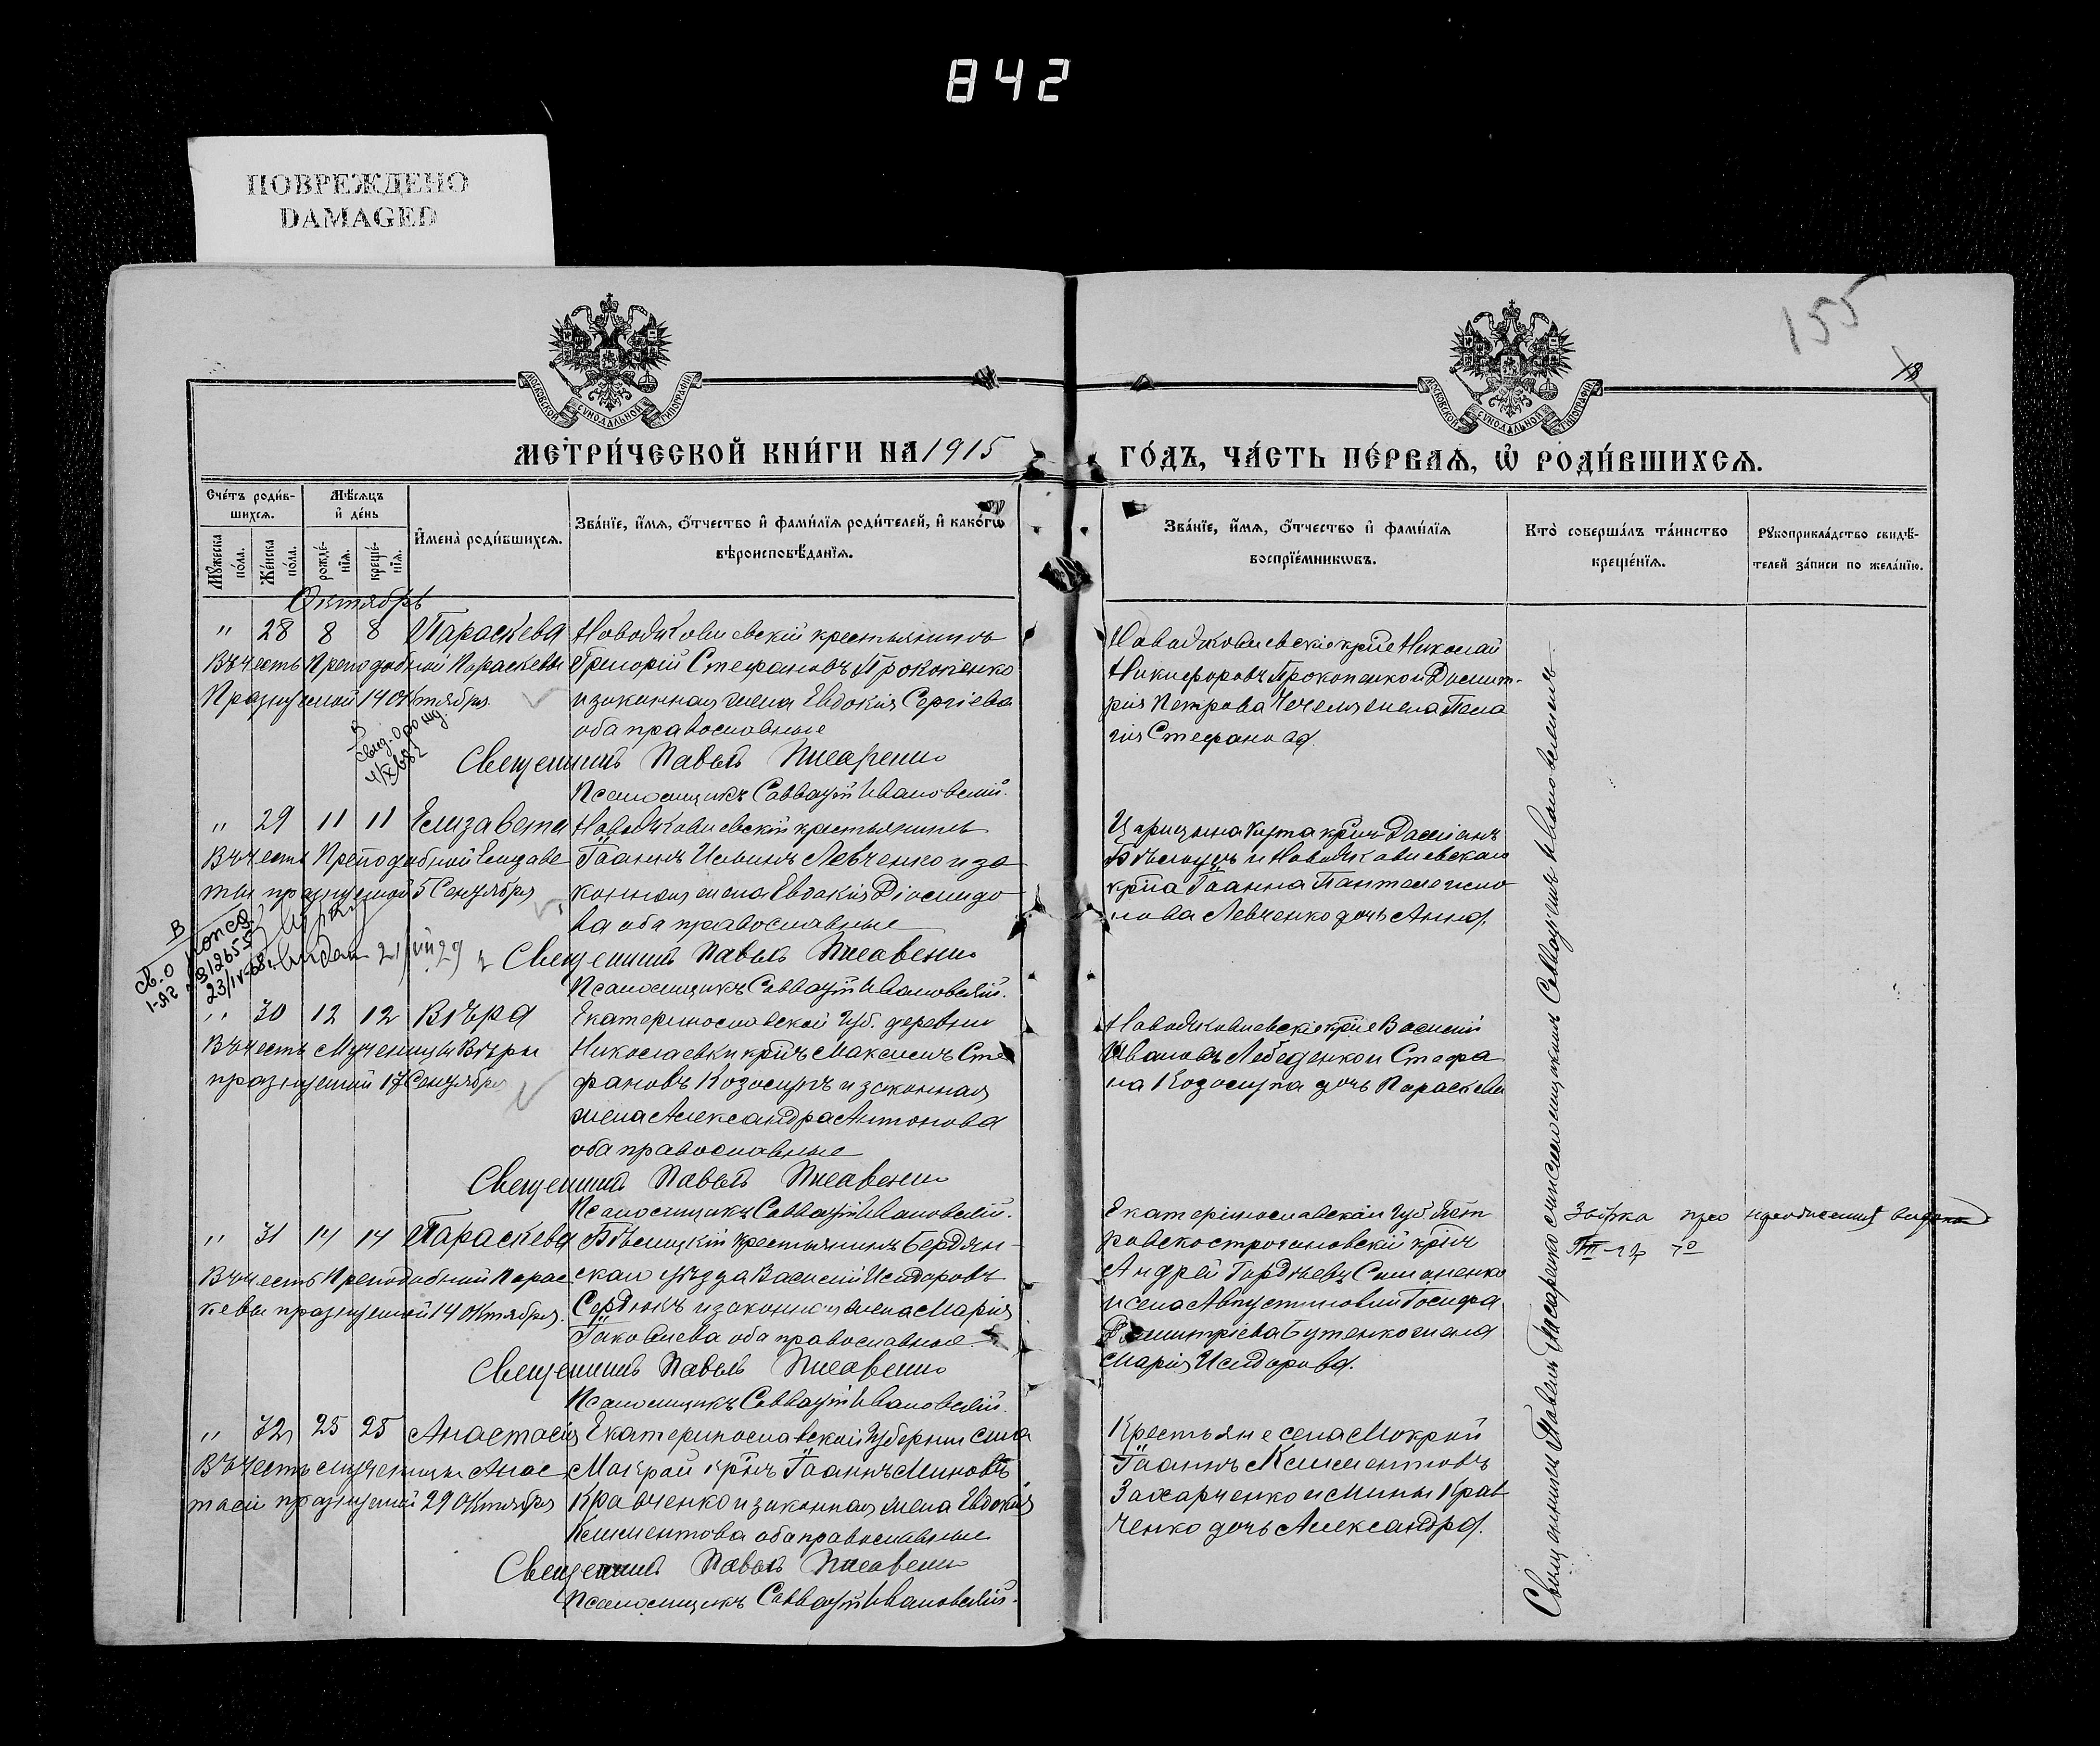 842
ПОВРЕЖДЕНО
DAMAGED
155
МОСКОВСКОЙ СѴНОДАЛЬНОЙ ТИПОГРАФІИ
МОСКОВСКОЙ СѴНОДАЛЬНОЙ ТИПОГРАФІИ
МЕТРИ́ЧЕСКОЙ КНИ́ГИ НА 1915
ГО́ДЪ, ЧА́СТЬ ПЕ́РВАѦ, Ѡ҆ РОДИ́ВШИХСѦ.
Сче́тъ роди́в-
шихсѧ.
Мꙋ́жеска по́ла.
Же́нска по́ла.
Мѣ́сѧцъ
и҆ де́нь
рожде́-
нїѧ.
креще́-
нїѧ.
И҆мена̀ роди́вшихсѧ.
Зва́нїе, и҆́мѧ, ѻ҆́тчество и҆ фами́лїѧ роди́телей, и҆ како́гѡ
вѣроисповѣ́данїѧ.
Зва́нїе, и҆́мѧ, ѻ҆́тчество и҆ фами́лїѧ
воспрїе́мникѡвъ.
Кто̀ соверша́лъ та́инство
креще́нїѧ.
Рꙋкоприкла́дство свидѣ́-
телей за́писи по жела́нїю.
Октябрь
" 28 8 8 Параскева
Въ честь Преподобной Параскевы
Празнуемой 14 Октября
Новояковлевскій крестьянинъ
Григорій Стефановъ Прокопенко
и законная жена Евдокія Сергіева
оба православные
Священникъ Павелъ Писаренко
Псаломщикъ Савватій Ивановскій.
Новояковлевскіе кр̃не Николай
Никифоровъ Прокопенко и Димит-
рія Петрова Чечеля жена Пела
гія Стефанова.
" 29 11 11 Елизавета
Въ честь Преподобной Елизаве
ты празнуемой 5 Сентября
Новояковлевскій крестьянинъ
Іоаннъ Ильинъ Левченко и за
конная жена Евдокія Діомидо
ва оба православные
Священникъ Павелъ Писаренко
Псаломщикъ Савватій Ивановскій.
Царицына Кута кр̃нъ Даміанъ
Бѣлоусъ и Новояковлевскаго
кр̃на Іоанна Пантелеимо
нова Левченко дочь Анна.
" 30 12 12 Вѣра
Въ честь Мученицы Вѣры
празнуемой 17 Сентября
Екатеринославской губ. деревни
Николаевки кр̃нъ Максимъ Сте
фановъ Козолупъ и законная
жена Александра Антонова
оба православные
Священникъ Павелъ Писаренко
Псаломщикъ Савватій Ивановскій.
Новояковлевскіе кр̃не Василій
Ивановъ Лебеденко и Стефа
на Козолупа дочь Параскева
" 31 14 14 Параскева
Въ честь Преподобной Парас
кевы празнуемой 14 Октября.
Бѣлицкій крестьянинъ Бердян-
скаго уѣзда Василій Исидоровъ
Сердюкъ и законная жена Марія
Іаковлева оба православные.
Священникъ Павелъ Писаренко
Псаломщикъ Савватій Ивановскій.
Екатеринославской губ. Пет
ровскострогановскій кр̃нъ
Андрей Гордѣевъ Симоненко
и села Августиновки Іосифа
Димитріева Бутенко жена
Марія Исидорова.
" 32 25 25 Анастасія
Въ честь мученицы Анас
тасіи празнуемой 29 Октября
Екатеринославской губерніи села
Мокрой кр̃нъ Іоаннъ Миновъ
Кравченко и законная жена Евдокія
Климентова оба православные
Священникъ Павелъ Писаренко
Псаломщикъ Савватій Ивановскій.
Крестьяне села Мокрой
Іоаннъ Климентовъ
Захарченко и Мины Крав
ченко дочь Александра.
Священникъ Павелъ Писаренко съ псаломщикомъ Савватіемъ Ивановскимъ